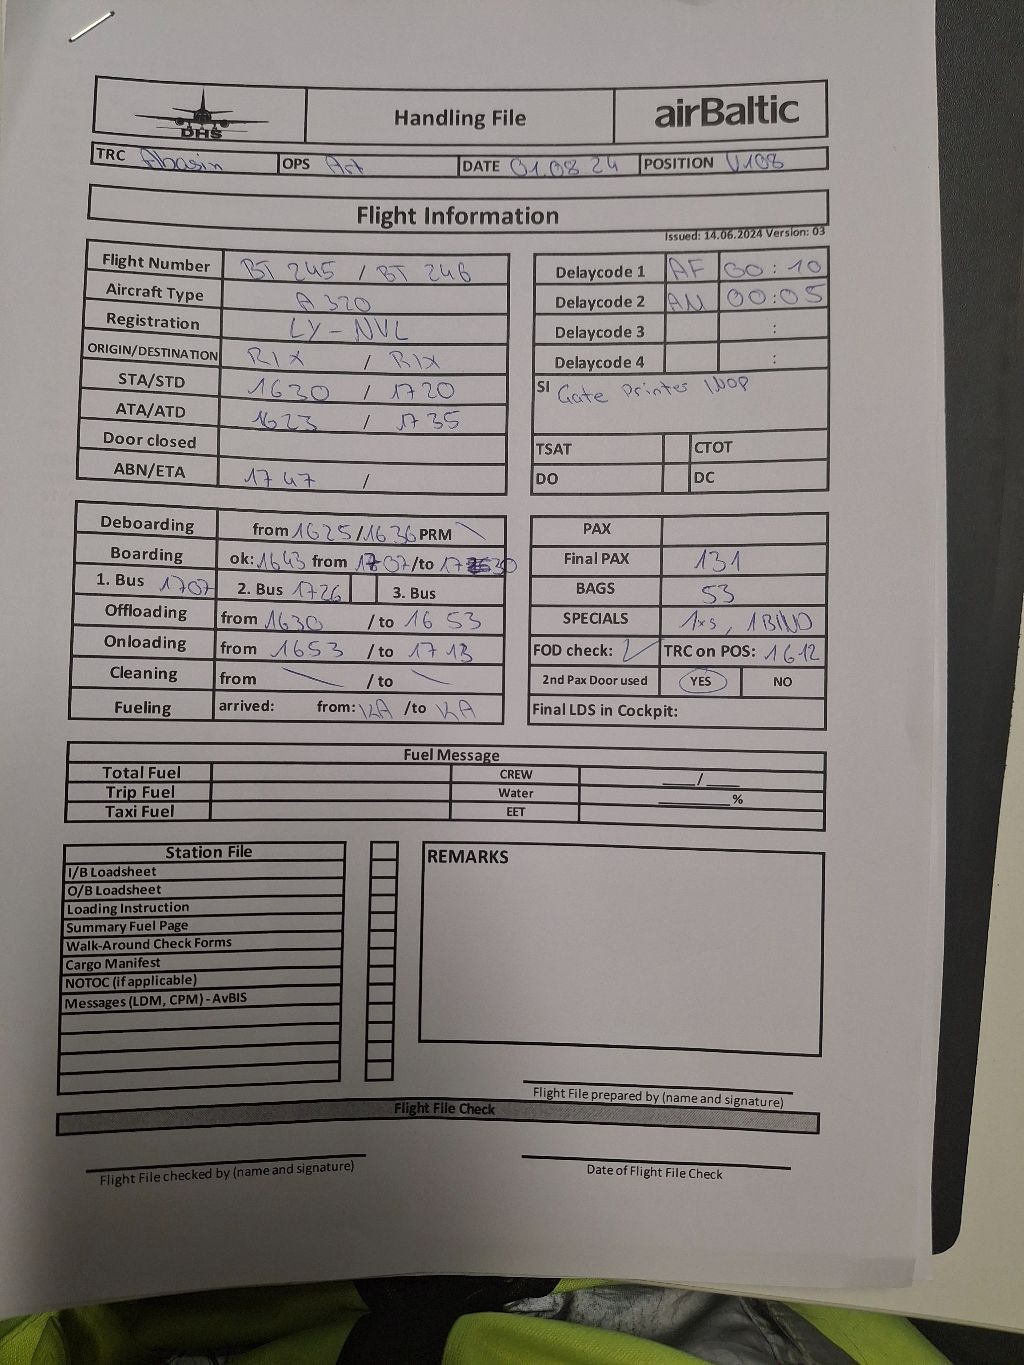 DHS
Handling File
airBaltic
TRC Abasin OPS Art DATE 01.08.24 POSITION V108
Flight Information
Issued: 14.06.2024 Version: 03
Flight Number BT 245 / BT 246
Aircraft Type A 320
Registration LY-NVL
ORIGIN/DESTINATION RIX / RIX
STA/STD 1630 / 1720
ATA/ATD 1623 / 1735
Door closed
ABN/ETA 1747 /
Delaycode 1 AF 00:10
Delaycode 2 AM 00:05
Delaycode 3 :
Delaycode 4 :
SI Gate Printer INOP
TSAT CTOT
DO DC
Deboarding from 1625/1636 PRM \
Boarding ok: 1643 from 1707/to 1730
1. Bus 1707 2. Bus 1726 3. Bus
Offloading from 1630 / to 1653
Onloading from 1653 / to 1713
Cleaning from \ / to \
Fueling arrived: from: /to
PAX
Final PAX 131
BAGS 53
SPECIALS 1xs, 1 BIND
FOD check: ✓ TRC on POS: 1612
2nd Pax Door used YES NO
Final LDS in Cockpit:
Fuel Message
Total Fuel CREW ____/____
Trip Fuel Water ________%
Taxi Fuel EET
Station File
I/B Loadsheet
O/B Loadsheet
Loading Instruction
Summary Fuel Page
Walk-Around Check Forms
Cargo Manifest
NOTOC (if applicable)
Messages (LDM, CPM) - AvBIS
REMARKS
Flight File prepared by (name and signature)
Flight File Check
Flight File checked by (name and signature)
Date of Flight File Check